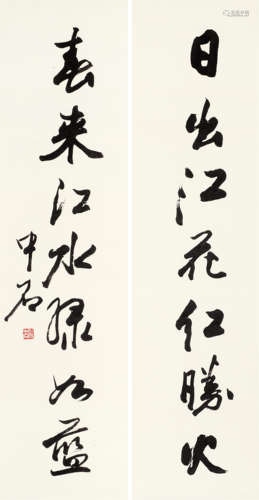 日出江花红胜火
春来江水绿如蓝
中石